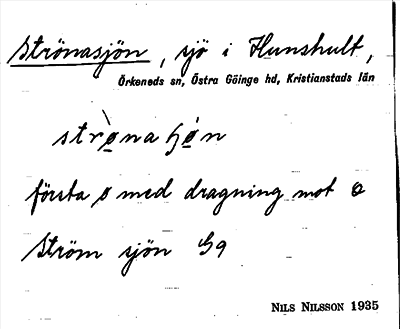 Strönasjön, sjö i Hunshult,
Örkeneds sn, Östra Göinge hd, Kristianstads län
strø̀na ɧøn
första ø med dragning mot ɵ
Ström sjön G9
NILS NILSSON 1935